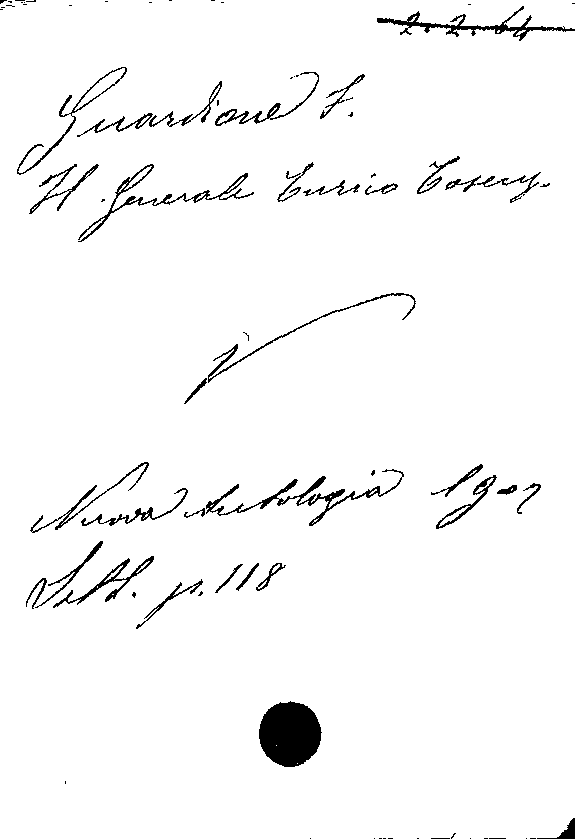 2.2.64
Guardione F.
Il Generale Enrico Cosenz.
Nuova Antologia 1907
Sett. p. 118